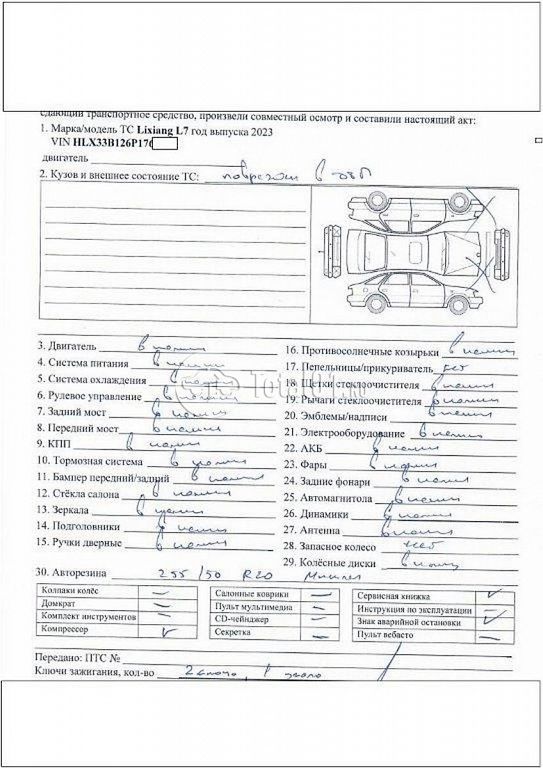 сдающий транспортное средство, произвели совместный осмотр и составили настоящий акт:
1. Марка/модель ТС Lixiang L7 год выпуска 2023
VIN HLX33B126P176
двигатель
2. Кузов и внешнее состояние ТС: в
3. Двигатель в наличии
4. Система питания в наличии
5. Система охлаждения в
6. Рулевое управление в наличии
7. Задний мост в наличии
8. Передний мост в наличии
9. КПП в наличии
10. Тормозная система в наличии
11. Бампер передний/задний в наличии
12. Стёкла салона в наличии
13. Зеркала в наличии
14. Подголовники в наличии
15. Ручки дверные в наличии
16. Противосолнечные козырьки в наличии
17. Пепельницы/прикуриватель нет
18. Щетки стеклоочистителя в наличии
19. Рычаги стеклоочистителя в наличии
20. Эмблемы/надписи в наличии
21. Электрооборудование в наличии
22. АКБ в наличии
23. Фары в наличии
24. Задние фонари в наличии
25. Автомагнитола в наличии
26. Динамики в наличии
27. Антенна в наличии
28. Запасное колесо нет
29. Колёсные диски в налич
Total01.ru
30. Авторезина 255/50 R20
Колпаки колёс –
Домкрат –
Комплект инструментов –
Компрессор ✓
Салонные коврики –
Пульт мультимедиа –
CD-чейнджер –
Секретка –
Сервисная книжка ✓
Инструкция по эксплуатации –
Знак аварийной остановки ✓
Пульт вебасто –
Передано: ПТС №
Ключи зажигания, кол-во 2 1